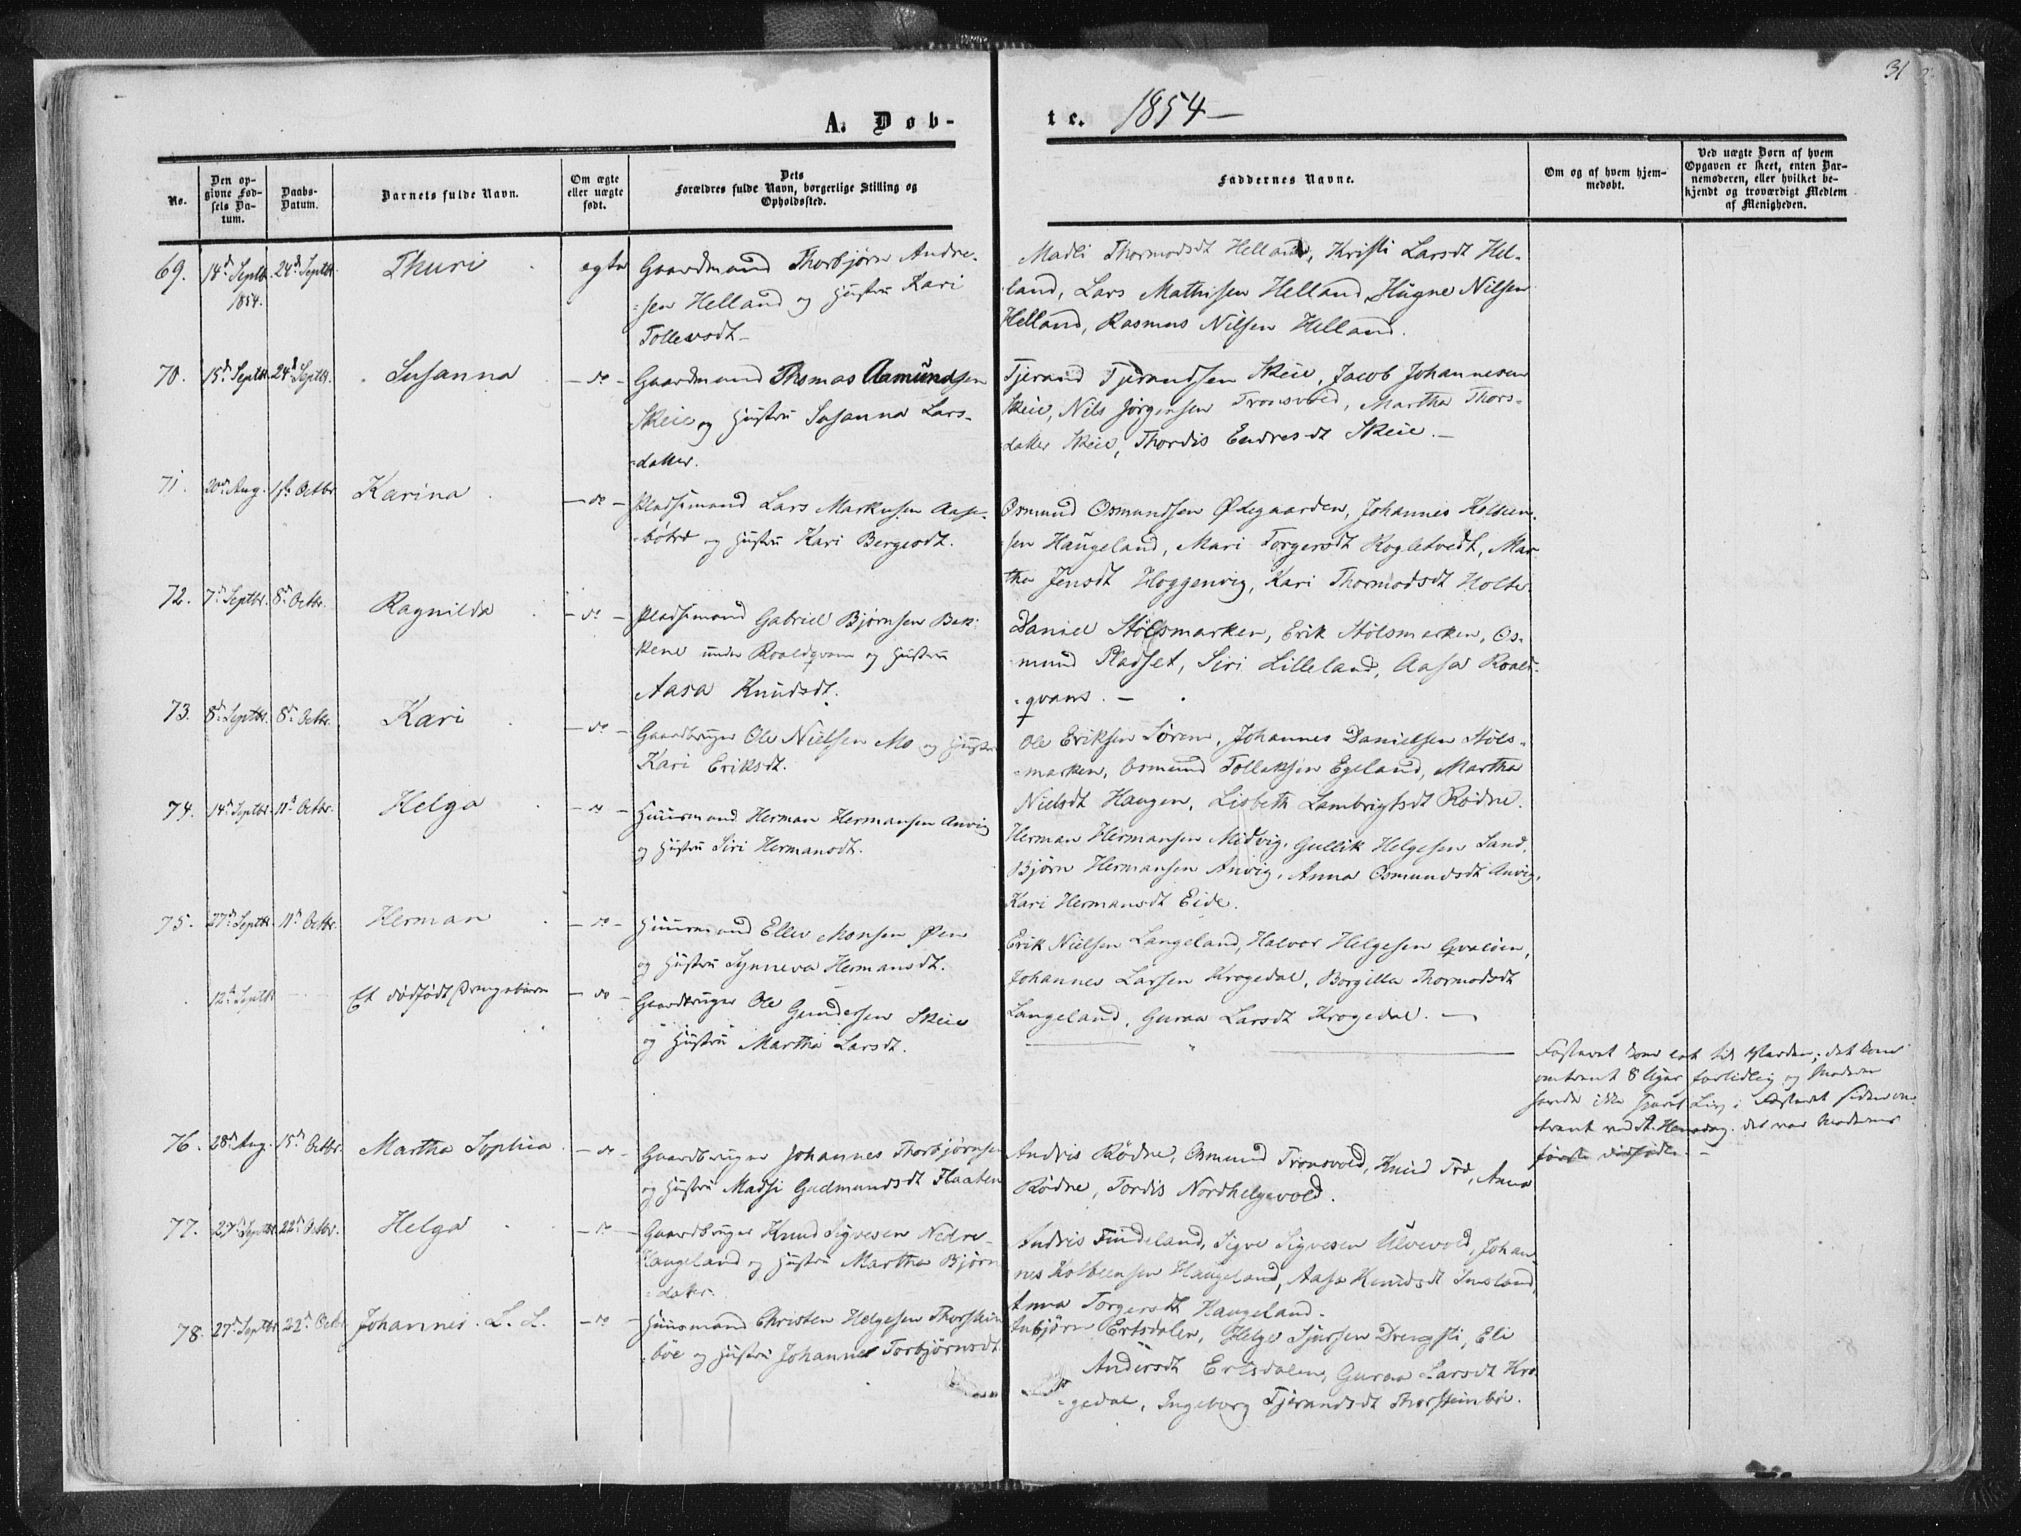 31
A. Døb-
te. 1854 —
No.
Den op-
givne Fød-
sels Da-
tum.
Daabs-
Datum.
Barnets fulde Navn.
Om ægte
eller uægte
født.
Dets
Forældres fulde Navn, borgerlige Stilling og
Opholdssted.
Faddernes Navne.
Om og af hvem hjem-
medøbt.
Ved uægte Børn af hvem
Opgaven er skeet, enten Bar-
nemoderen, eller hvilket be-
kjendt og troværdigt Medlem
af Menigheden.
69. 14d Septbr. 1854. 24d Septbr. Thuri egte
Gaardmand Thorbjørn Andre-
sen Helland og Hustru Kari
Tollevsdt —
Madli Thormodsdt Helland, Kristi Larsdt Hel-
land, Lars Mathisen Helland, Hugne Nilsen
Helland, Rasmus Nilsen Helland.
70. 15d Septbr. 24d Septbr. Susanna — do —
Gaardmand Thomas Aamundsen
Skeie og Hustru Susanna Lars-
datter.
Tjerand Tjerandsen Skeie, Jacob Johannesen
Skeie, Nils Jørgensen Tronsvold, Martha Thors-
datter Skeie, Thordis Endresdt Skeie. —
71. 20de Aug. 1ste Octbr. Karina — do —
Pladsmand Lars Markusen Aase-
bøtre og Hustru Kari Bergesdt.
Osmund Osmundsen Ødegaarden, Johannes Kolbein-
sen Haugeland, Mari Torgersdt Rogletvedt, Mar-
tha Jensdt Hoggenvig, Kari Thormodsdt Holte.
72. 7d Septbr. 8d Octbr. Ragnilda — do —
Pladsmand Gabriel Bjørnsen Bak-
kene under Roaldqvam og Hustru
Aasa Knudsdt.
Daniel Stølsmarken, Erik Stølsmarken, Os-
mund Pladset, Siri Lilleland, Aasa Roald-
qvam. —
73. 8d Septbr. 8d Octbr. Kari — do —
Gaardbruger Ole Nielsen Mo og Hustru
Kari Eriksdt.
Ole Eriksen Søren, Johannes Danielsen Støls-
marken, Osmund Tollaksen Egeland, Martha
Nielsdt Haugen, Lisbeth Lambrigtsdt Rødne.
74. 14d Septbr. 11d Octbr. Helga — do —
Huusmand Herman Hermansen Anvig
og Hustru Siri Hermansdt.
Herman Hermansen Midvig, Gullik Helgesen Sand,
Bjørn Hermansen Anvig, Anna Osmundsdt Anvig,
Kari Hermansdt Eide.
75. 27d Septbr. 11d Octbr. Herman — do —
Huusmand Ellev Monsen Øen
og Hustru Synneva Hermansdt.
Erik Nielsen Langeland, Halvor Helgesen Qvaløen,
Johannes Larsen Krogedal, Borgilla Thormodsdt
Langeland, Guraa Larsdt Krogedal. —
12te Septbr. Et dødfødt Drengebarn — do —
Gaardbruger Ole Gundersen Skeie
og Hustru Martha Larsdt.
Fosteret kom lat til Verden; det kom
omtrent 8 Uger fortidlig og Moderen
havde ikke sporet Liv i Fosteret siden om-
trent ved St. Hansdag. det var Moderens
første dødfødte. —
76. 28d Aug. 15d Octbr. Martha Sophia — do —
Gaardbruger Johannes Thorbjørnsen
og Hustru Madsi Gudmundsdt Flaaten
Andris Rødne, Osmund Tronsvold, Knud Træ, Anna
Rødne, Tordis Nordhelgevold.
77. 27d Septbr. 22d Octbr. Helga — do —
Gaardbruger Knud Sigvesen Nedre-
Haugeland og Hustru Martha Bjørn-
datter.
Andris Findeland, Sigve Sigvesen Ulvevold, Johan-
nes Kolbeensen Haugeland, Aasa Knudsdt Imsland,
Anna Torgersdt Haugeland.
78. 27d Septbr. 22d Octbr. Johannes. L. L. — do —
Huusmand Christen Helgesen Thorstein-
bøe og Hustru Johanne Torbjørnsdt
Anbjørn Ertsdalen, Helge Sjursen Drengsti, Eli
Andersdt Ertsdalen, Guraa Larsdt Kro-
gedal, Ingeborg Tjerandsdt Thorsteinbøe.